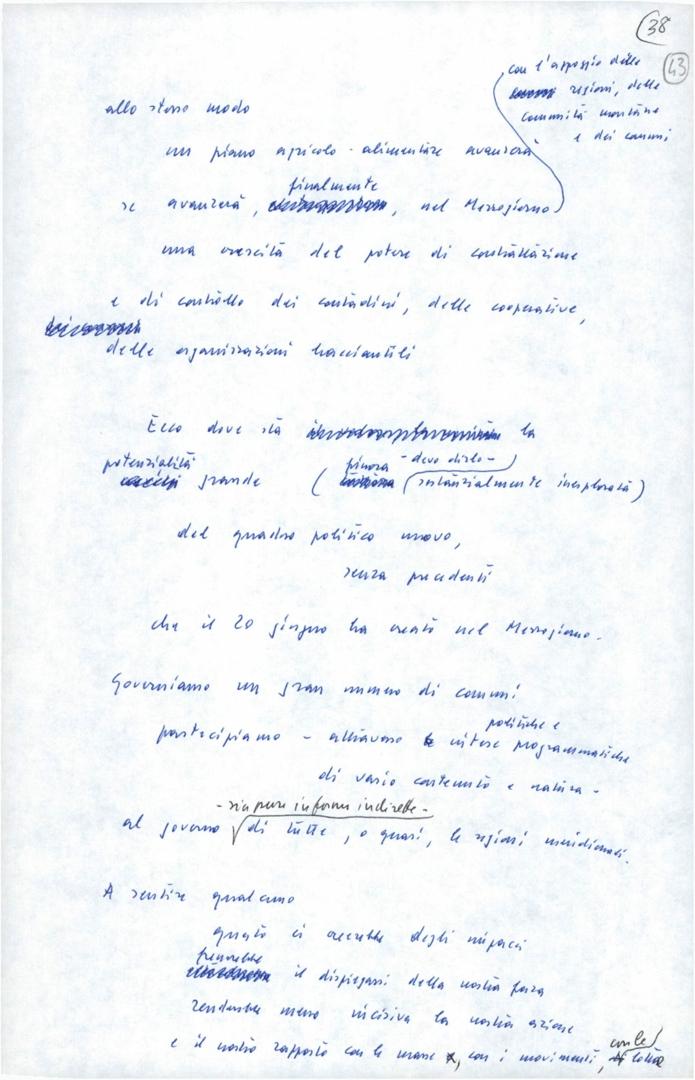 38
43
con l'appoggio delle
regioni, delle
comunità montane
e dei comuni
allo stesso modo
un piano agricolo-alimentare avanzerà
finalmente
se avanzerà, , nel Mezzogiorno
una crescita del potere di contrattazione
e di controllo dei contadini, delle cooperative,
delle organizzazioni bracciantili
Ecco dove sta la
potenzialità finora - devo dirlo -
grande ( sostanzialmente inesplorata)
del quadro politico nuovo,
senza precedenti
che il 20 giugno ha creato nel Mezzogiorno.
Governiamo un gran numero di comuni
politiche e
partecipiamo - attraverso intese programmatiche
di vario contenuto e natura -
- sia pure in forme indirette -
al governo di tutte, o quasi, le regioni meridionali.
A sentire qualcuno
questo ci creerebbe degli impacci
frenerebbe
il dispiegarsi della nostra forza
renderebbe meno incisiva la nostra azione
con le
e il nostro rapporto con le masse, con i movimenti, lotte